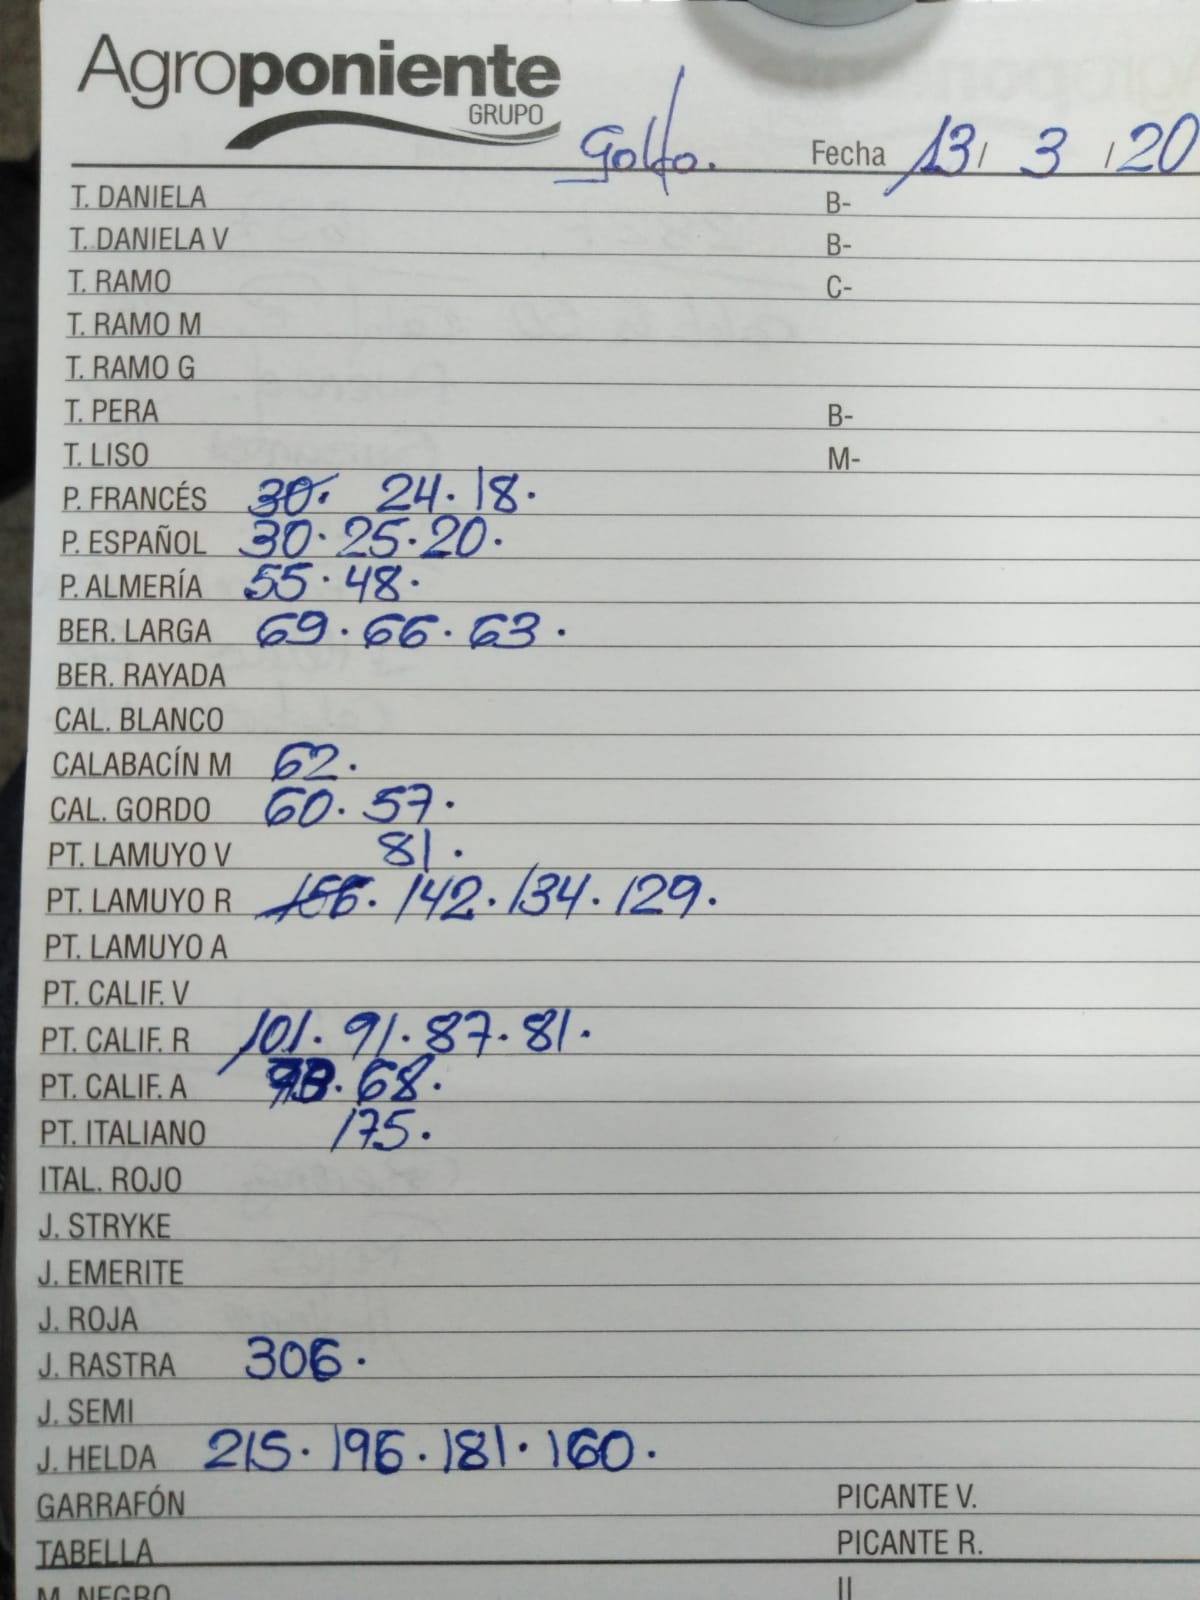 Agroponiente
GRUPO
Golfo. Fecha 13/ 3 /20
T. DANIELA B-
T. DANIELA V B-
T. RAMO C-
T. RAMO M
T. RAMO G
T. PERA B-
T. LISO M-
P. FRANCÉS 30. 24. 18.
P. ESPAÑOL 30. 25. 20.
P. ALMERÍA 55. 48.
BER. LARGA 69. 66. 63.
BER. RAYADA
CAL. BLANCO
CALABACÍN M 62.
CAL. GORDO 60. 57.
PT. LAMUYO V 81.
PT. LAMUYO R 142. 134. 129.
PT. LAMUYO A
PT. CALIF. V
PT. CALIF. R 101. 91. 87. 81.
PT. CALIF. A 68.
PT. ITALIANO 175.
ITAL. ROJO
J. STRYKE
J. EMERITE
J. ROJA
J. RASTRA 306.
J. SEMI
J. HELDA 215. 196. 181. 160.
GARRAFÓN PICANTE V.
TABELLA PICANTE R.
M. NEGRO